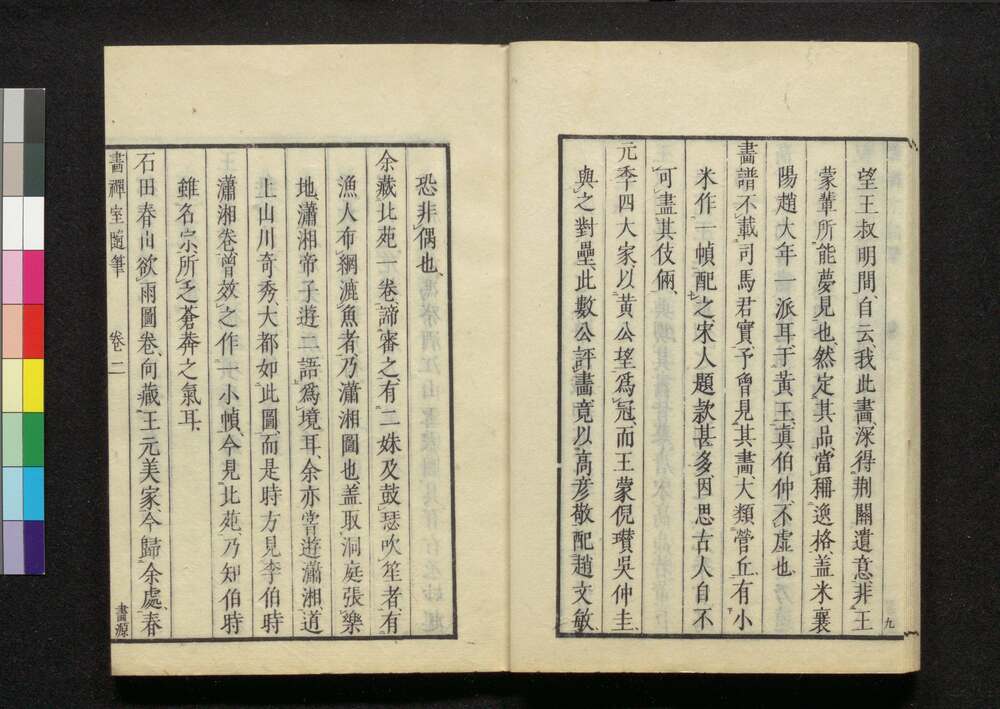 望王叔明間、自云、我此畵、深得荆關遺意、非王
蒙輩所能夢見也、然定其品、當稱逸格、盖米襄
陽趙大年一派耳、于黃王、眞伯仲、不虛也
畵譜不載司馬君實、予曾見其畵、大類營丘、有小
米作一幀配之、宋人題款甚多、因思古人自不
可盡其伎倆、
元季四大家、以黃公望爲冠、而王蒙倪瓚吳仲圭、
與之對壘、此數公評畵、竟以高彦敬配趙文敏、
九
恐非偶也、
余藏北苑一卷、諦審之、有二姝及鼓瑟吹笙者、有
漁人布網漉魚者、乃瀟湘圖也、盖取洞庭張樂
地、瀟湘帝子遊二語爲境耳、余亦嘗遊瀟湘、道
上山川奇秀、大都如此圖、而是時方見李伯時
瀟湘卷、曾效之作一小幀、今見北苑、乃知伯時
雖名宗所乏蒼莽之氣耳、
石田春山欲雨圖卷、向藏王元美家、今歸余處、春
畵禪室隨筆　卷二　畵源